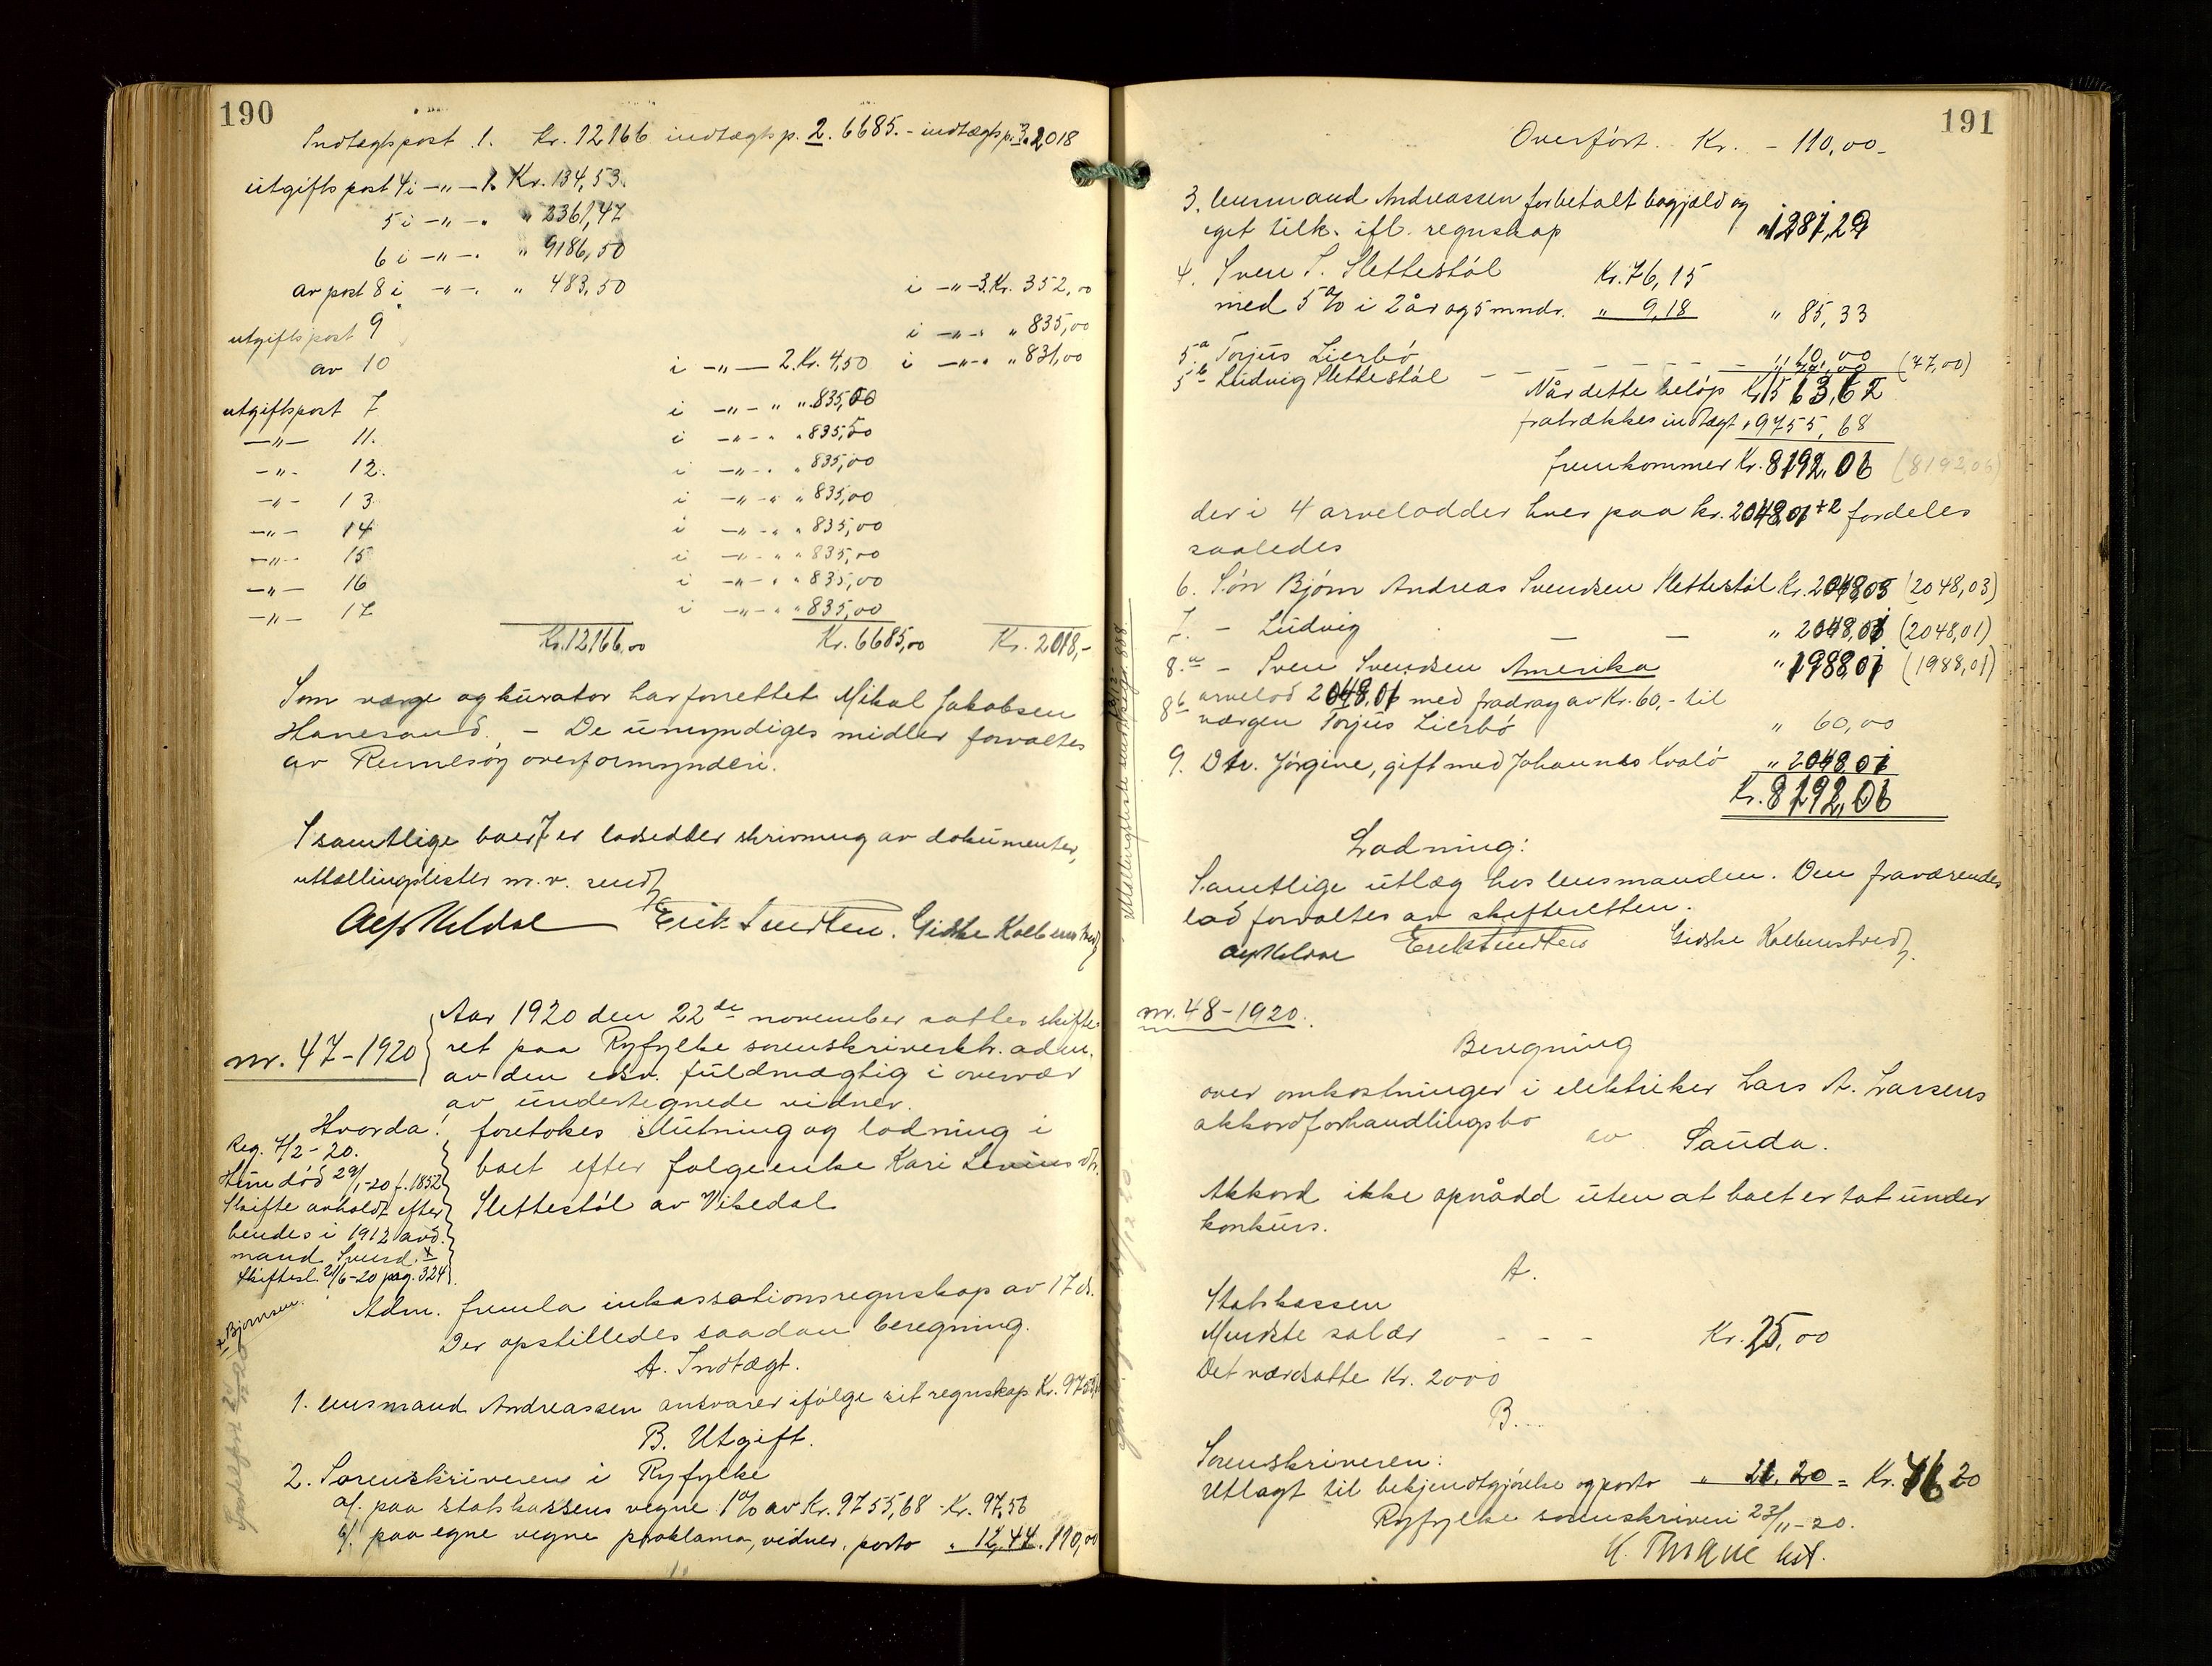 190
Indtægtspost 1. Kr. 12166 indtægtsp. 2. 6685.- indtægtsp. 3. 2018
utgiftspost 4 i -„- 1. Kr. 134,53.
5 i -„- . „ 2361,47
6 i -„- . „ 9186,50
av post 8 i -„- . „ 483,50 i -„- 3. Kr. 352,00
utgiftspost 9 i -„- . „ 835,00
av 10 i -„- 2. Kr. 4,50 i -„- . „ 831,00
utgiftspost 7 i -„- „ „ 835,00
-„- 11. i -„- . „ 835,50
-„- 12. i -„- . „ 835,00
-„- 13 i -„- „ „ 835,00
-„- 14 i -„- . „ 835,00
-„- 15 i -„- . „ 835,00
-„- 16 i -„- . „ 835,00
-„- 17 i -„- . „ 835,00
Kr. 12166,00 Kr. 6685,00 Kr. 2018,-
Som værge og kurator har forrettet Mikal Jakobsen
Hanesand. - De umyndiges midler forvaltes
av Rennesøy overformynderi.
I samtlige boer er lodsedler skrivning av dokumenter,
uttællingslister m.v. sendt
Erik Tendten. Gidske Kolbenstvedt
nr. 47-1920
Aar 1920 den 22de november sattes skifte-
ret paa Ryfylke sorenskriverktr. adm.
av den edsv. fuldmægtig i overvær
av undertegnede vidner.
Hvorda! foretokes slutning og lodning i
boet efter folgeenke Kari Leviusdtr.
Slettestøl av Vikedal
Reg. 4/2-20.
Hun død 29/1-20 f. 1852
Skifte avholdt efter
hendes i 1912 avd.
mand Svend x
Skiftesl. 21/6-20 pag. 324
x Bjørnsen.
Adm. fremla inkassationsregnskap av 17 ds.
Der opstilledes saadan beregning.
A. Indtægt.
1. lensmand Andreassen ansvarer ifølge sit regnskap Kr. 9755
B. Utgift.
2. Sorenskriveren i Ryfylke
a/. paa statskassens vegne 1% av Kr. 9755,68 - Kr. 97,56
b/. paa egne vegne proklama, vidner, porto „ 12,44. 110,00
191
Overført. Kr. - 110,00-
3. lensmand Andreassen for betalt bogjæld og
eget tilk. ifl. regnskap „ 1281,29
4. Sven S. Slettestøl Kr. 76,15
med 5% i 2 år og 5 mndr. „ 9,18 „ 85,33
5a Torjus Lierbø - - - - - - „ 40,00
5b Ludvig Slettestøl - - „ 47,00 (47,00)
Når dette beløp Kr 1563,62
fratrækkes indtægt „ 9755,68
fremkommer Kr. 8192,06 (8192,06)
der i 4 arvelodder hver paa kr. 2048,01 +2 fordeles
saaledes
6. Søn Bjørn Andreas Svendsen Slettestøl Kr. 2048,03 (2048,03)
7. - Ludvig - - „ 2048,01 (2048,01)
8.a - Sven Svendsen Amerika „ 1988,01 (1988,01)
8b arvelod 2048,01 med fradrag av Kr. 60,- til
værgen Torjus Lierbø „ 60,00
9. Dtr. Jørgine, gift med Johannes Kvalø „ 2048,01
Kr. 8192,06
Lodning:
Samtlige utlæg hos lensmanden. Den fraværendes
lod forvaltes av skifteretten.
Erik Tendten Gidske Kolbenstvedt.
nr. 48-1920.
Beregning
over omkostninger i elektriker Lars A. Larsens
akkordforhandlingsbo
av Sauda.
Akkord ikke opnådd uten at boet er tat under
konkurs.
A.
Statskassen
Mindste salær - - - Kr. 25,00
Det værdsatte Kr. 2000
B.
Sorenskriveren:
Utlagt til bekjendtgjørelse og porto „ 21,20 = Kr. 46,20
Ryfylke sorenskriveri 23/11-20.